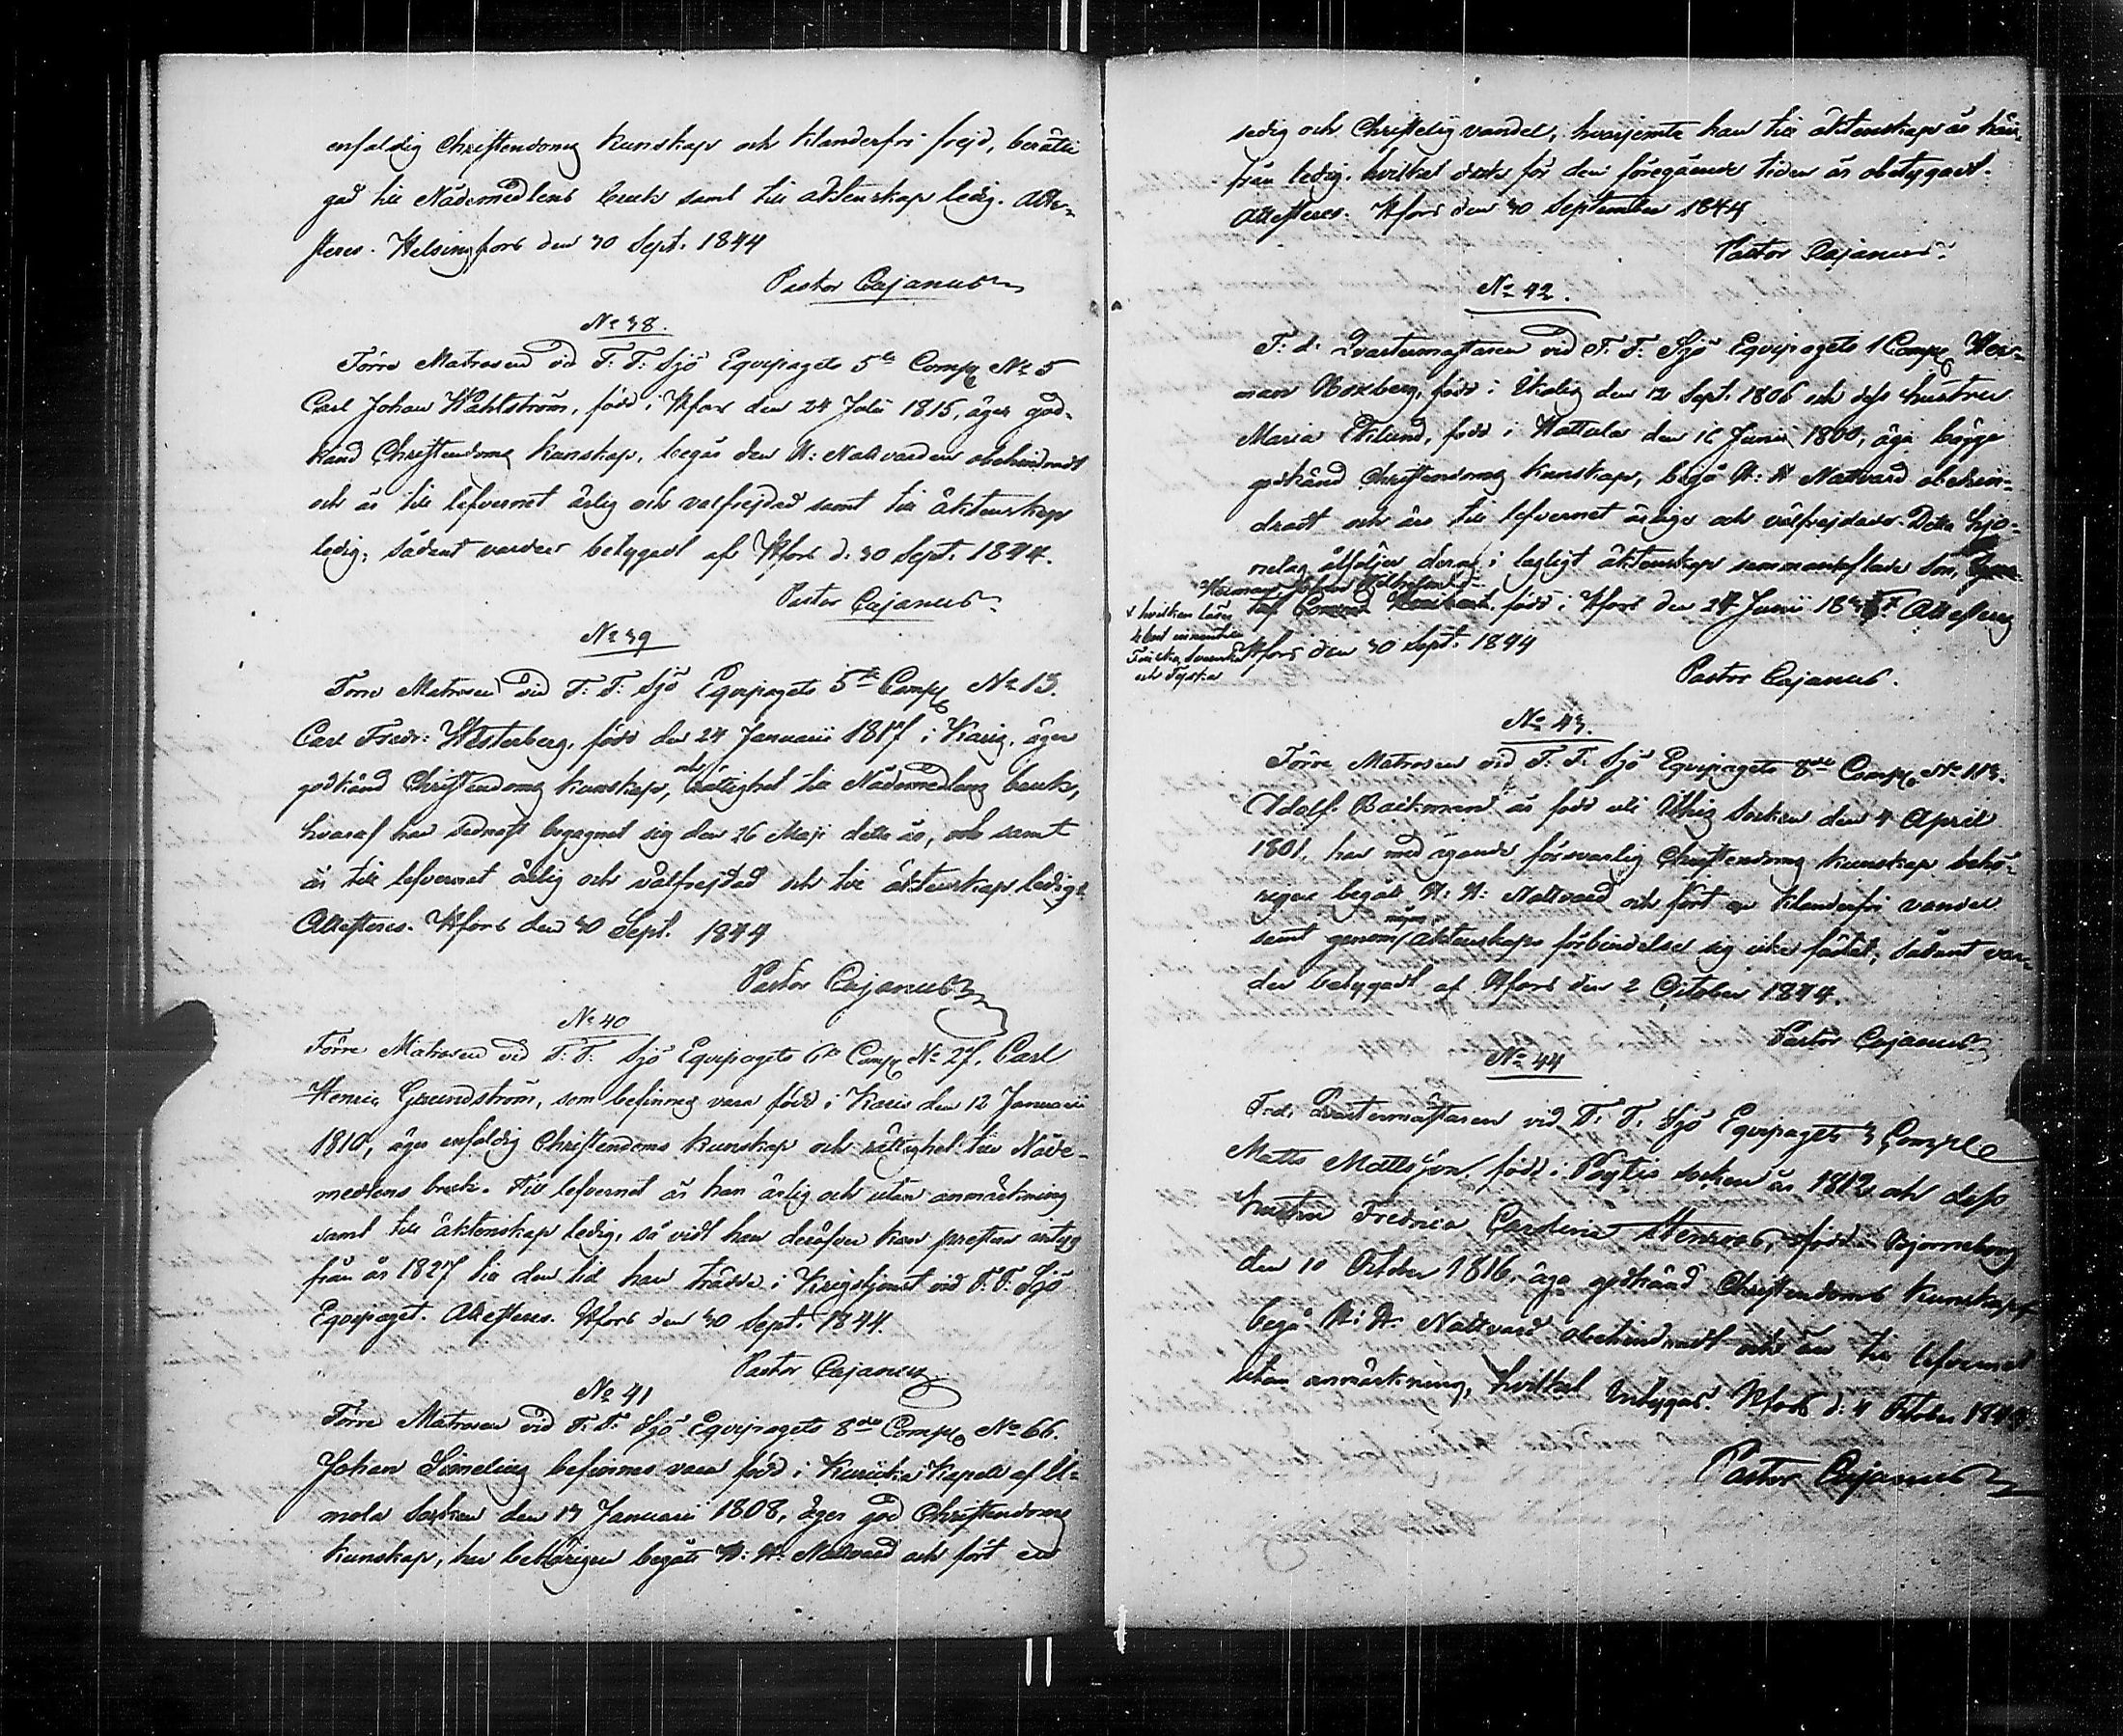 enfaldig Christendoms kunskap och klanderfri frejd, berätti
gad till Nådemedlens bruk samt till äktenskap ledig. Atte-
steres. Helsingfors den 30 Sept. 1844
Pastor Cajanus
No 38.
Förre Matrosen vid F. F. Sjö Eqvipagets 5te Comp. No 5
Carl Johan Wahlström, född i Hfors den 24 Julii 1815, äger god-
känd Christendoms kunskap, begår den H: Nattvarden obehindradt
och är till lefvernet ärlig och välfrejdad samt till äktenskap
ledig; sådant varder betygadt af Hfors d. 30 Sept. 1844.
Pastor Cajanus
No 39
Förre Matrosen vid F. F. Sjö Eqvipagets 5te Comp. No 13.
Carl Fredr: Westerberg, född den 24 Januarii 1817 i Karis, äger
godkänd Christendoms kunskap, och rättighet till Nådemedlens bruk,
hvaraf han sednast begagnat sig den 26 Maji detta år, och samt
är till lefvernet ärlig och välfrejdad och till äktenskap ledig.
Attesteres. Hfors den 30 Sept. 1844
Pastor Cajanus
No 40
Förre Matrosen vid F. F. Sjö Eqvipagets 6te Comp. No 27, Carl
Henric Grundström, som befinnes vara född i Karis den 12 Januarii
1810, äger enfaldig Christendoms kunskap och rättighet till Nåde-
medlens bruk. Till lefvernet är han ärlig och utan anmärkning
samt till äktenskap ledig, så vidt han deröfver kan presteras intyg
från år 1827 till den tid han trädde i Krigstjenst vid F. F. Sjö
Eqvipaget. Attesteres. Hfors den 30 Sept. 1844.
Pastor Cajanus
No 41
Förre Matrosen vid F. F. Sjö Eqvipagets 8de Comp. No 66.
Johan Simeling befinnes vara född i Kurikka Kapell af Il-
mola Socken den 13 Januarii 1808, äger god Christendoms
kunskap, har behörigen begått H: H: Nattvard och fört en
sedig och Christelig vandel, hvarjemte han till äktenskap är här-
från ledig. hvilket dock för den föregående tiden är obetygadt.
Attesteres. Hfors den 30 September 1844
Pastor Cajanus
No 42.
F. d. Qvartermästaren vid F. F. Sjö Eqvipagets 1 Comp. Her-
man Boxberg, född i Ikalis den 12 Sept. 1806 och dess hustru
Maria Eklund, född i Hattula den 16 Junii 1800, äga bägge
godkänd Christendoms kunskap, begå H: H Nattvard obehin-
dradt och äro till lefvernet ärlige och välfrejdade. Detta hjo-
nelag åtföljer deras i lagligt äktenskap sammanaflade Son,
Herman Johan Wilhelm
född i Hfors den 24 Junii 18 Attesteras
x hvilken läser
Finska, Svenska
och Tyska
Hfors den 30 Sept. 1844
Pastor Cajanus.
No 43.
Förre Matrosen vid F. F. Sjö Eqvipagets 8de Comp. No 113.
Adolf Backman är född uti Uskis Socken den 4 April
1801, har med ägande försvarlig Christendoms kunskap behö-
rigen begått H: H: Nattvard och fört en klanderfri vandel
samt genom någon äktenskaps förbindelse sig icke fästat; sådant var-
der betygadt af Hfors den 2 October 1844.
Pastor Cajanus
No 44
F. d. Qvartermästaren vid F. F. Sjö Eqvipagets 3 Comp.
Matts Mattsson, född i Pöytis socken år 1812 och dess
hustru Fredrica Carolina Henrics, född i Björneborg
den 10 October 1816, äga godkänd Christendoms kunskap,
begå H: H. Nattvard obehindradt och äro till lefvernet
utan anmärkning, hvilket betygas. Hfors d. 4 October 1844.
Pastor Cajanus